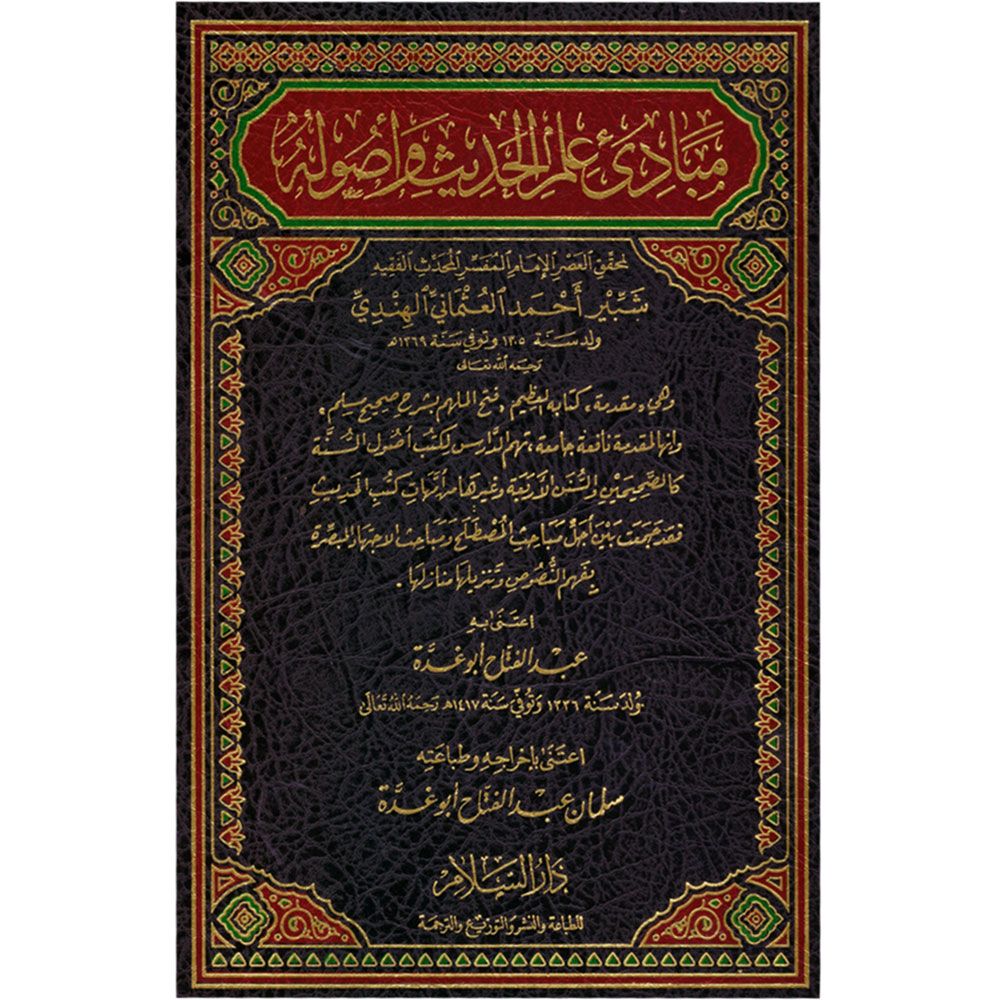 مَبَادِئ عِلْمِ الحَدِيثِ وَأُصُولُهُ
لمحقق العصر الإمام المفسر المحدث الفقيه
شَبِّير أَحْمَد العُثْمَانِيّ الهِنْدِيّ
ولد سنة ١٣٠٥ وتوفي سنة ١٣٦٩هـ
رحمه الله تعالى
وهي «مقدمة» كتابه العظيم «فتح الملهم بشرح صحيح مسلم»
وإنها لمقدمة نافعة جامعة، تهم الدارس لكتب أصول السُّنَّة
كالصَّحِيحَيْنِ والسُّنَن الأَرْبَعَة وغيرها من أمَّهات كتب الحَدِيثِ
فقد جَمَعَت بَيْن أَجَلّ مَبَاحِثِ المُصْطَلَح وَمَبَاحِث الاجتِهَاد المُبَصِّرة
بفهم النُّصُوصِ وَتنزيلها منازلها.
اعتَنَى بِهِ
عبد الفتاح أبو غدَّة
وُلِدَ سَنَة ١٣٣٦ وَتُوفِّي سَنَة ١٤١٧هـ رَحِمَهُ اللهُ تَعَالَى
اعتَنَى بإخراجِهِ وطباعَتِه
سلمان عبد الفتاح أبو غدَّة
دَارُ السَّلَامِ
للطباعة والنشر والتوزيع والترجمة